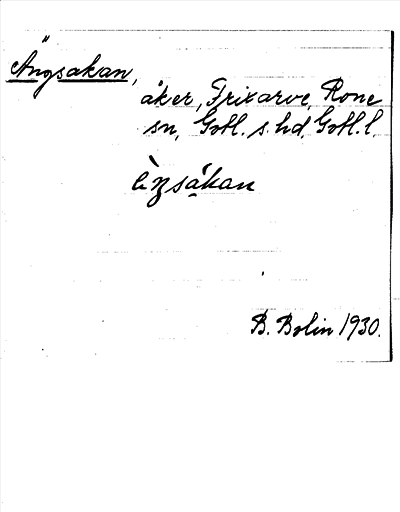 Ängsakan,
åker, Frixarve, Rone
sn, Gotl. s. hd, Gotl. l.
B. Bolin 1930.